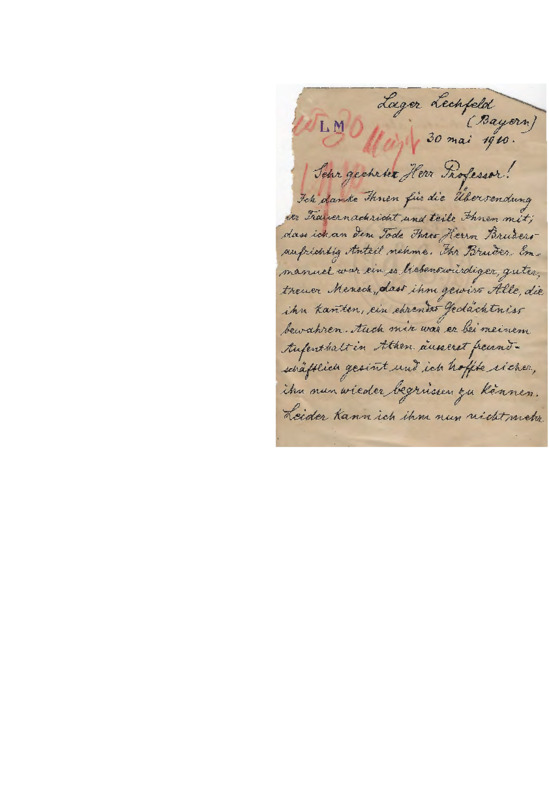 Lager Lechfeld
(Bayern)
L M
30 mai 1910.
Sehr geehrter Herr Professor!
Ich danke Ihnen für die Übersendung
der Trauernachricht und teile Ihnen mit,
dass ich an dem Tode Ihres Herrn Bruders
aufrichtig Anteil nehme. Ihr Bruder Em-
manuel war ein so liebenswürdiger, guter,
treuer Mensch, dass ihm gewiss Alle, die
ihn kanten, ein ehrendes Gedächtniss
bewahren. Auch mir war er bei meinem
Aufenthalt in Athen äusserst freund-
schäftlich gesint und ich hoffte sicher,
ihn nun wieder begrüssen zu können.
Leider kann ich ihm nun nicht mehr